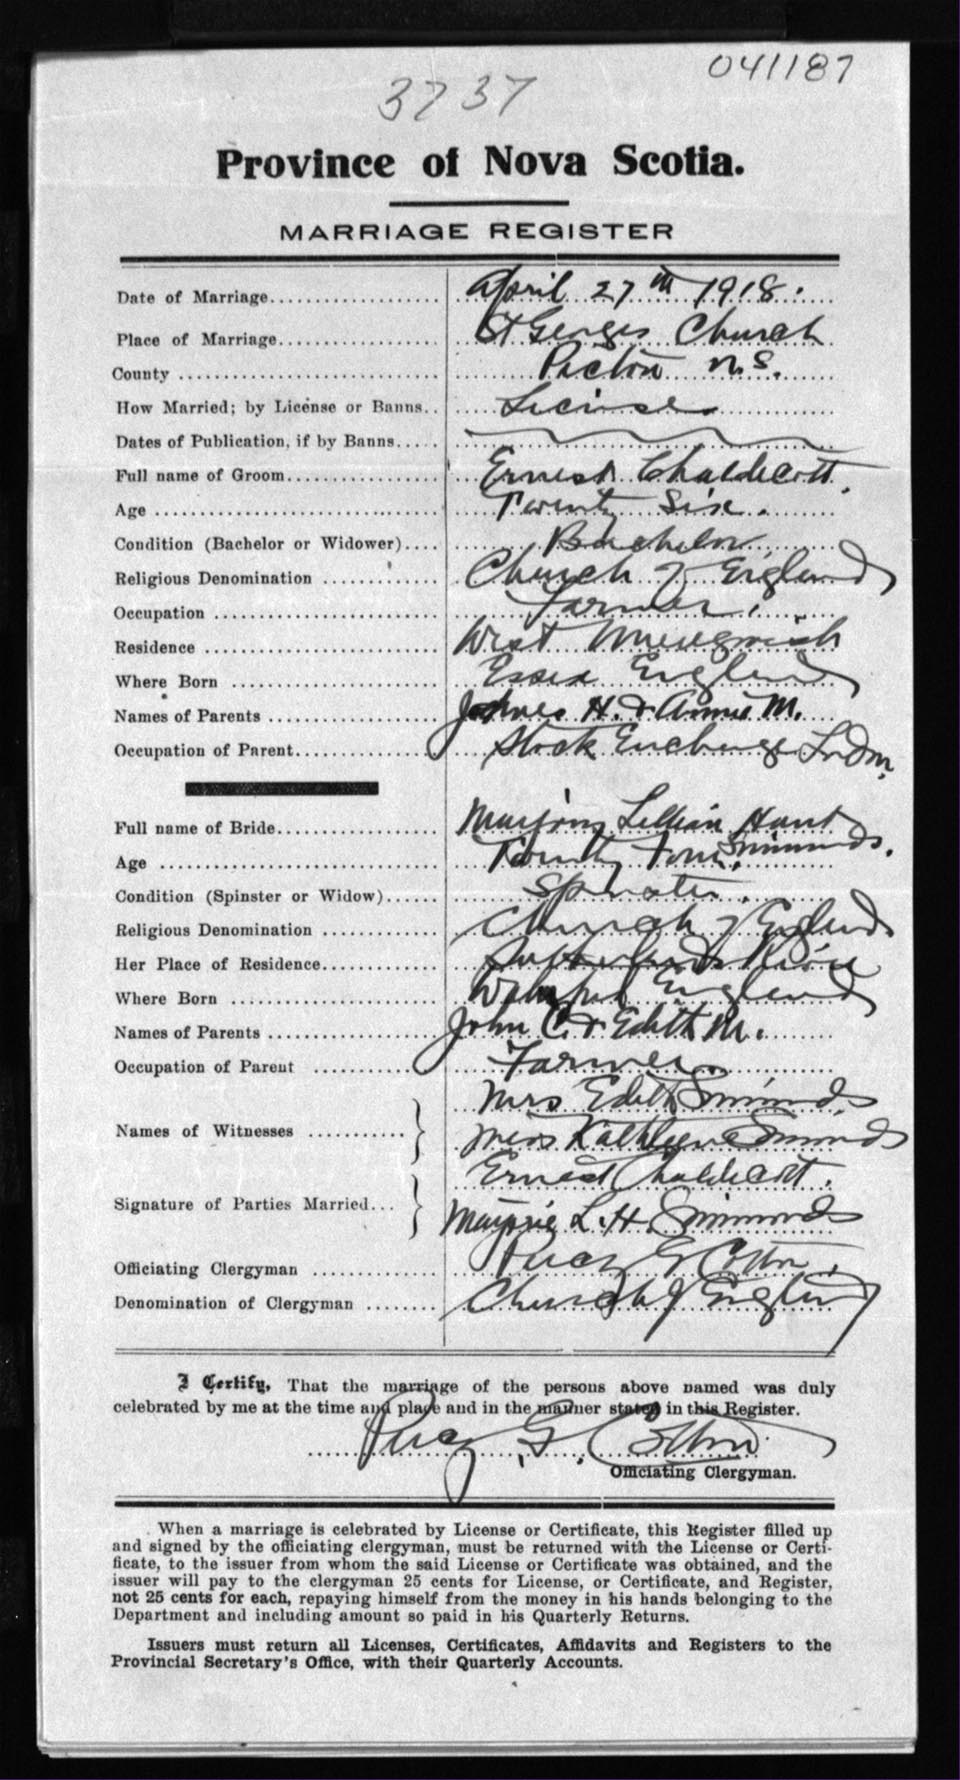 041187
3737
Province of Nova Scotia.
MARRIAGE REGISTER
Date of Marriage.................... April 27th 1918.
Place of Marriage.................... St Georges Church
County .................... Pictou N.S.
How Married; by License or Banns.. License
Dates of Publication, if by Banns.....
Full name of Groom.................... Ernest Chaldecott.
Age .................... Twenty Six.
Condition (Bachelor or Widower).... Bachelor
Religious Denomination .......... Church of England
Occupation .................... Farmer.
Residence .................... West Merigomish
Where Born .................... Essex England
Names of Parents .................... James H. & Annie M.
Occupation of Parent.................... Stock Exchange London.
Full name of Bride.................... Marjory Lillian Hunt
Simmonds.
Age .................... Twenty Four.
Condition (Spinster or Widow)...... Spinster.
Religious Denomination .......... Church of England
Her Place of Residence.............. Sutherlands River
Where Born .................... England
Names of Parents .................... John C. & Edith M.
Occupation of Parent ............ Farmer
Mrs Edith Simmonds
Names of Witnesses ........... Miss Kathleen Simmonds
Ernest Chaldecott.
Signature of Parties Married... Marjorie L. H. Simmonds
Officiating Clergyman ............ Percy G. Cotton.
Denomination of Clergyman ........ Church of England
I Certify, That the marriage of the persons above named was duly
celebrated by me at the time and place and in the manner stated in this Register.
Percy G. Cotton
Officiating Clergyman.
When a marriage is celebrated by License or Certificate, this Register filled up
and signed by the officiating clergyman, must be returned with the License or Certi-
ficate, to the issuer from whom the said License or Certificate was obtained, and the
issuer will pay to the clergyman 25 cents for License, or Certificate, and Register,
not 25 cents for each, repaying himself from the money in his hands belonging to the
Department and including amount so paid in his Quarterly Returns.
Issuers must return all Licenses, Certificates, Affidavits and Registers to the
Provincial Secretary's Office, with their Quarterly Accounts.